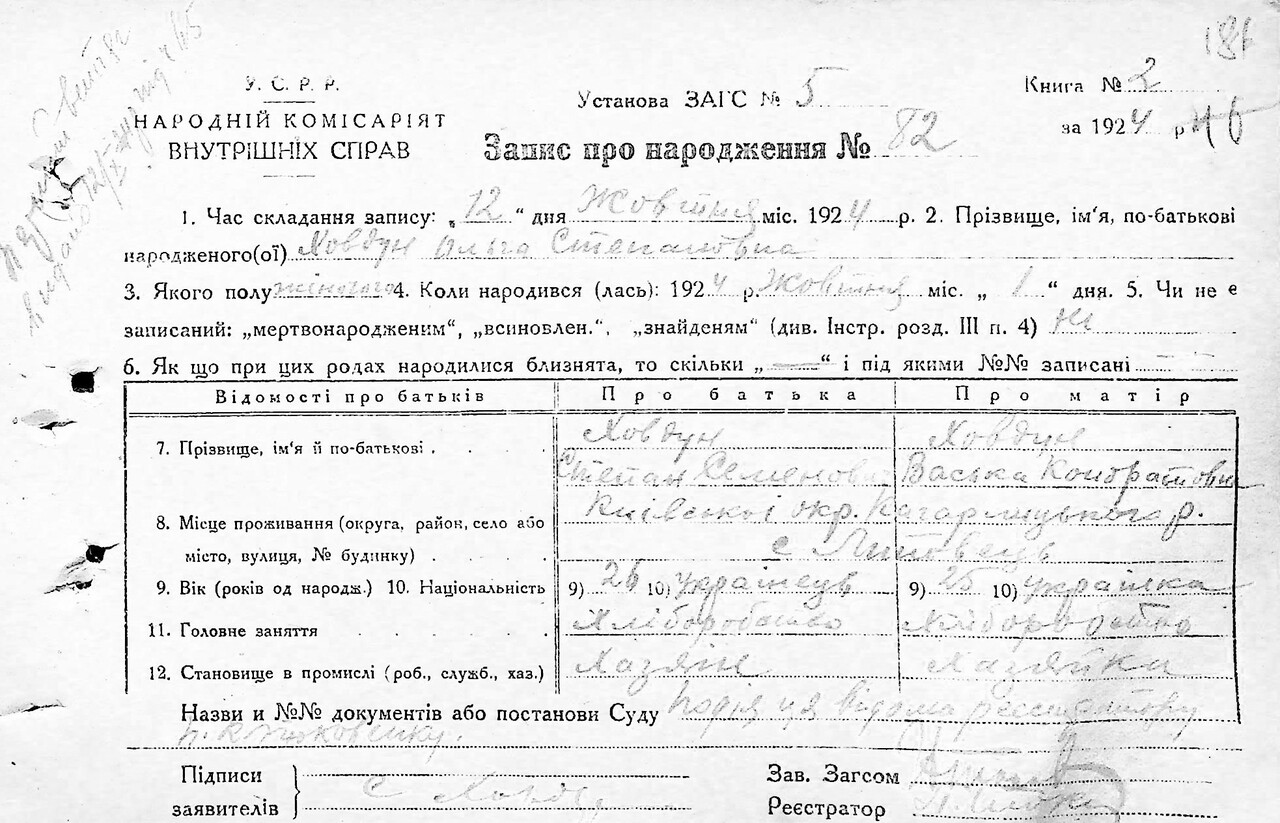 186
У. С. Р. Р.
НАРОДНІЙ КОМІСАРІЯТ
ВНУТРІШНІХ СПРАВ
Установа ЗАГС № 5
Книга № 2
за 1924 р.
Запис про народження № 82
1. Час складання запису: „12“ дня Жовтня міс. 1924 р. 2. Прізвище, ім'я, по-батькові
народженого(ої) Ховдун Ольга Степановна
3. Якого полу жіночого 4. Коли народився (лась): 1924 р. Жовтня міс. „1“ дня. 5. Чи не є
записаний: „мертвонародженим“, „всиновлен.“, „знайденям“ (див. Інстр. розд. III п. 4) Ні
6. Як що при цих родах народилися близнята, то скільки „—“ і під якими №№ записані
Відомості про батьків Про батька Про матір
7. Прізвище, ім'я й по-батькові . . . Ховдун Ховдун
Степан Семенович Васька Кондратовна
8. Місце проживання (округа, район, село або Київської окр. Кагарлицького р.
місто, вулиця, № будинку) . . с Липовець
9. Вік (років од народж.) 10. Національність 9) 26 10) українець 9) 25 10) українка
11. Головне заняття . . . . . Хліборобство Хліборобство
12. Становище в промислі (роб., служб., хаз.) Хазяїн Хазяйка
Назви и №№ документів або постанови Суду подія ця відома реєстратору
Підписи
заявителів С Ховдун
Зав. Загсом
Реєстратор